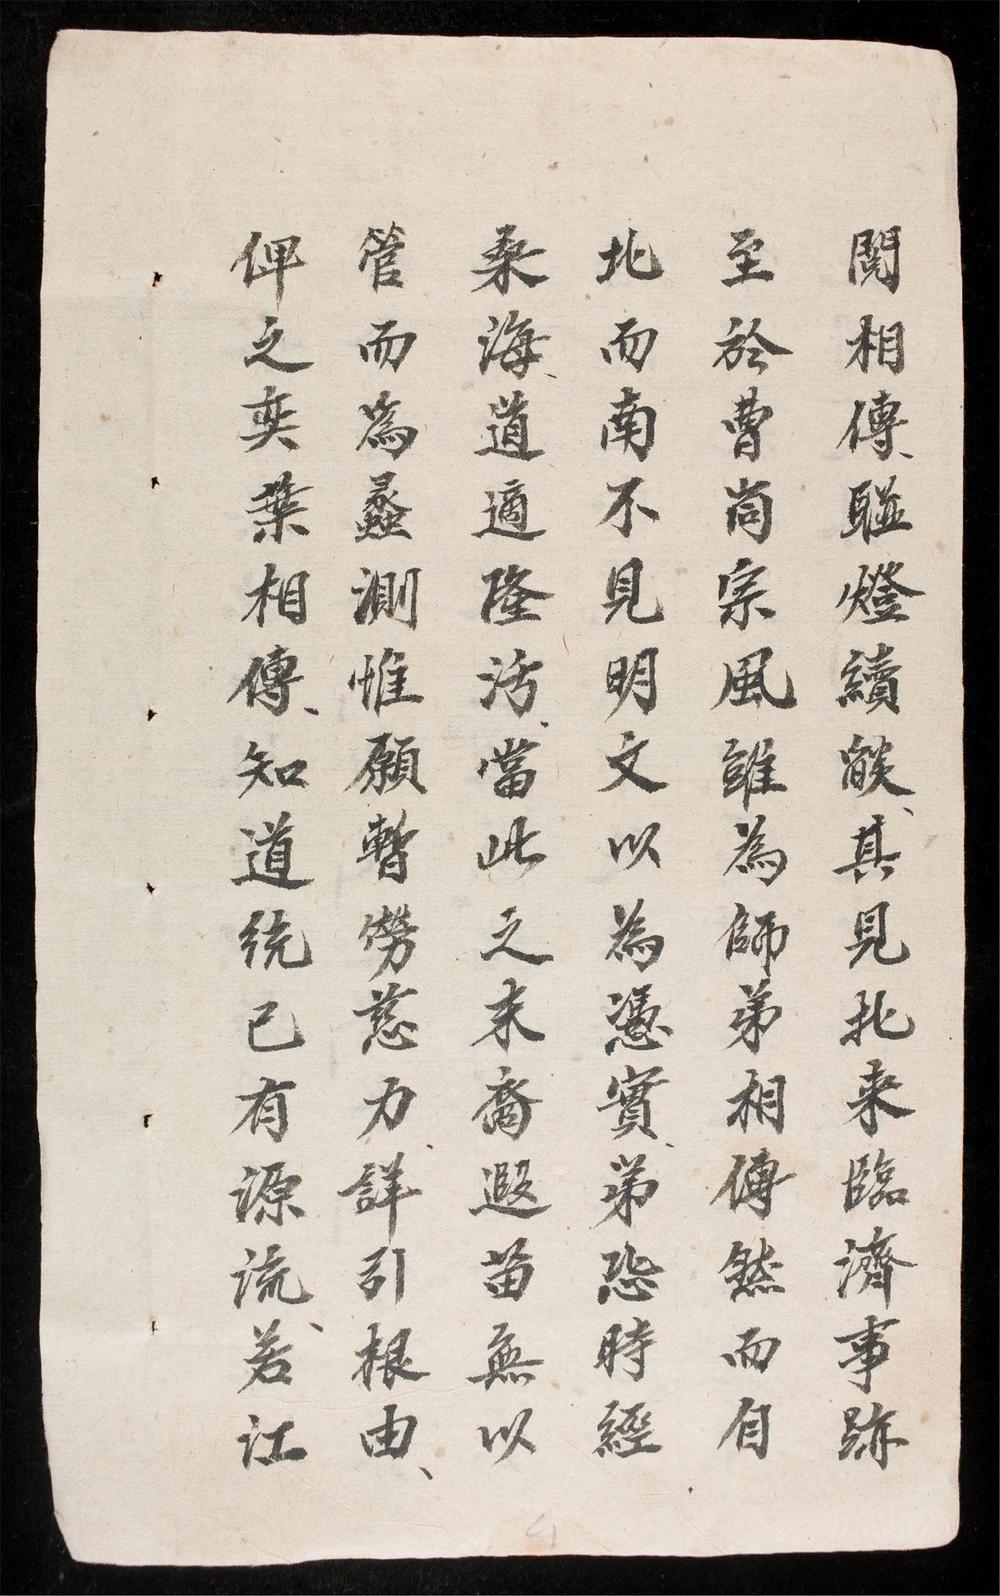 閱相傳、聯燈續燄、其見北来臨濟事跡
至於曹崗宗風雖為師弟相傳然而自
北而南不見明文以為憑實、弟恐時經
桑海、道適隆污、當此之末裔遐苗無以
管而為蠡測惟願暫勞慈力、詳引根由、
俾之奕葉相傳、知道统已有源流、若江